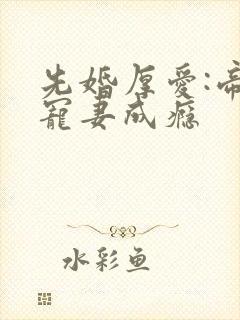 先婚厚爱:帝
宠妻成瘾
水彩鱼